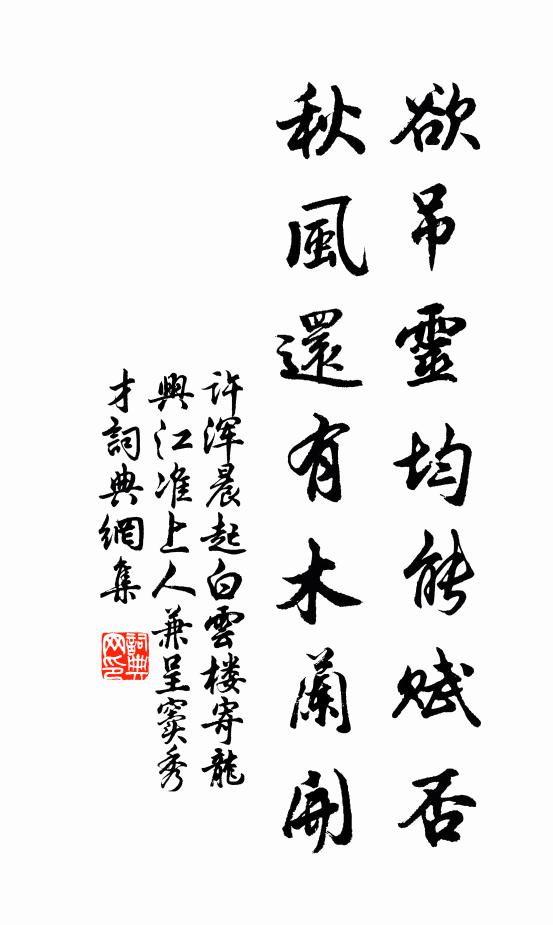 欲吊靈均能賦否
秋風還有木蘭開
许浑晨起白雲楼寄龍
興江准上人兼呈竇秀
才詞典網集
詞典网印